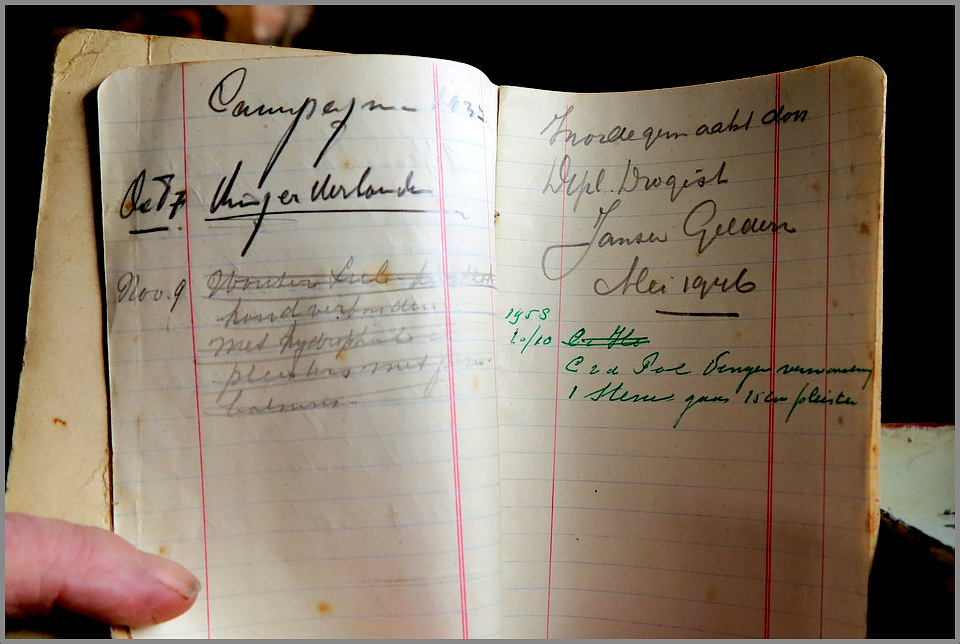 Campagne 193
Oct 7 Vinger Verbonden
Nov. 9 Wouter
hand verbonden
met hydrophiel
pleisters met
balsem
In orde gemaakt door
Dipl. Drogist
Jansen Geldern
Mei 1946
1953
20/10
C v d Pol Vinger verwonding
1 Steriel gaas 15 cm pleister